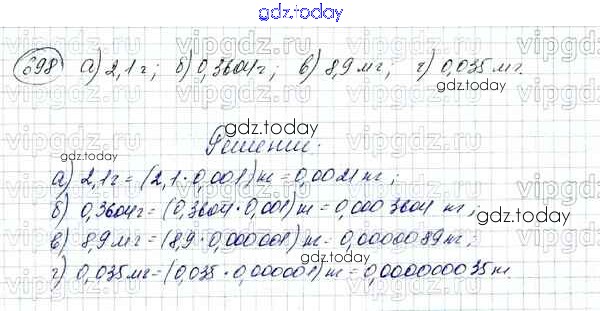 gdz.today
698 а) 2,1 г; б) 0,3604 г; в) 8,9 мг; г) 0,035 мг.
vipgdz.ru vipgdz.ru vipgdz.ru
gdz.today
Решение.
а) 2,1 г = (2,1 · 0,001) кг = 0,0021 кг;
б) 0,3604 г = (0,3604 · 0,001) кг = 0,0003604 кг;
в) 8,9 мг = (8,9 · 0,000001) кг = 0,0000089 кг;
г) 0,035 мг = (0,035 · 0,000001) кг = 0,000000035 кг.
gdz.today
gdz.today
gdz.today